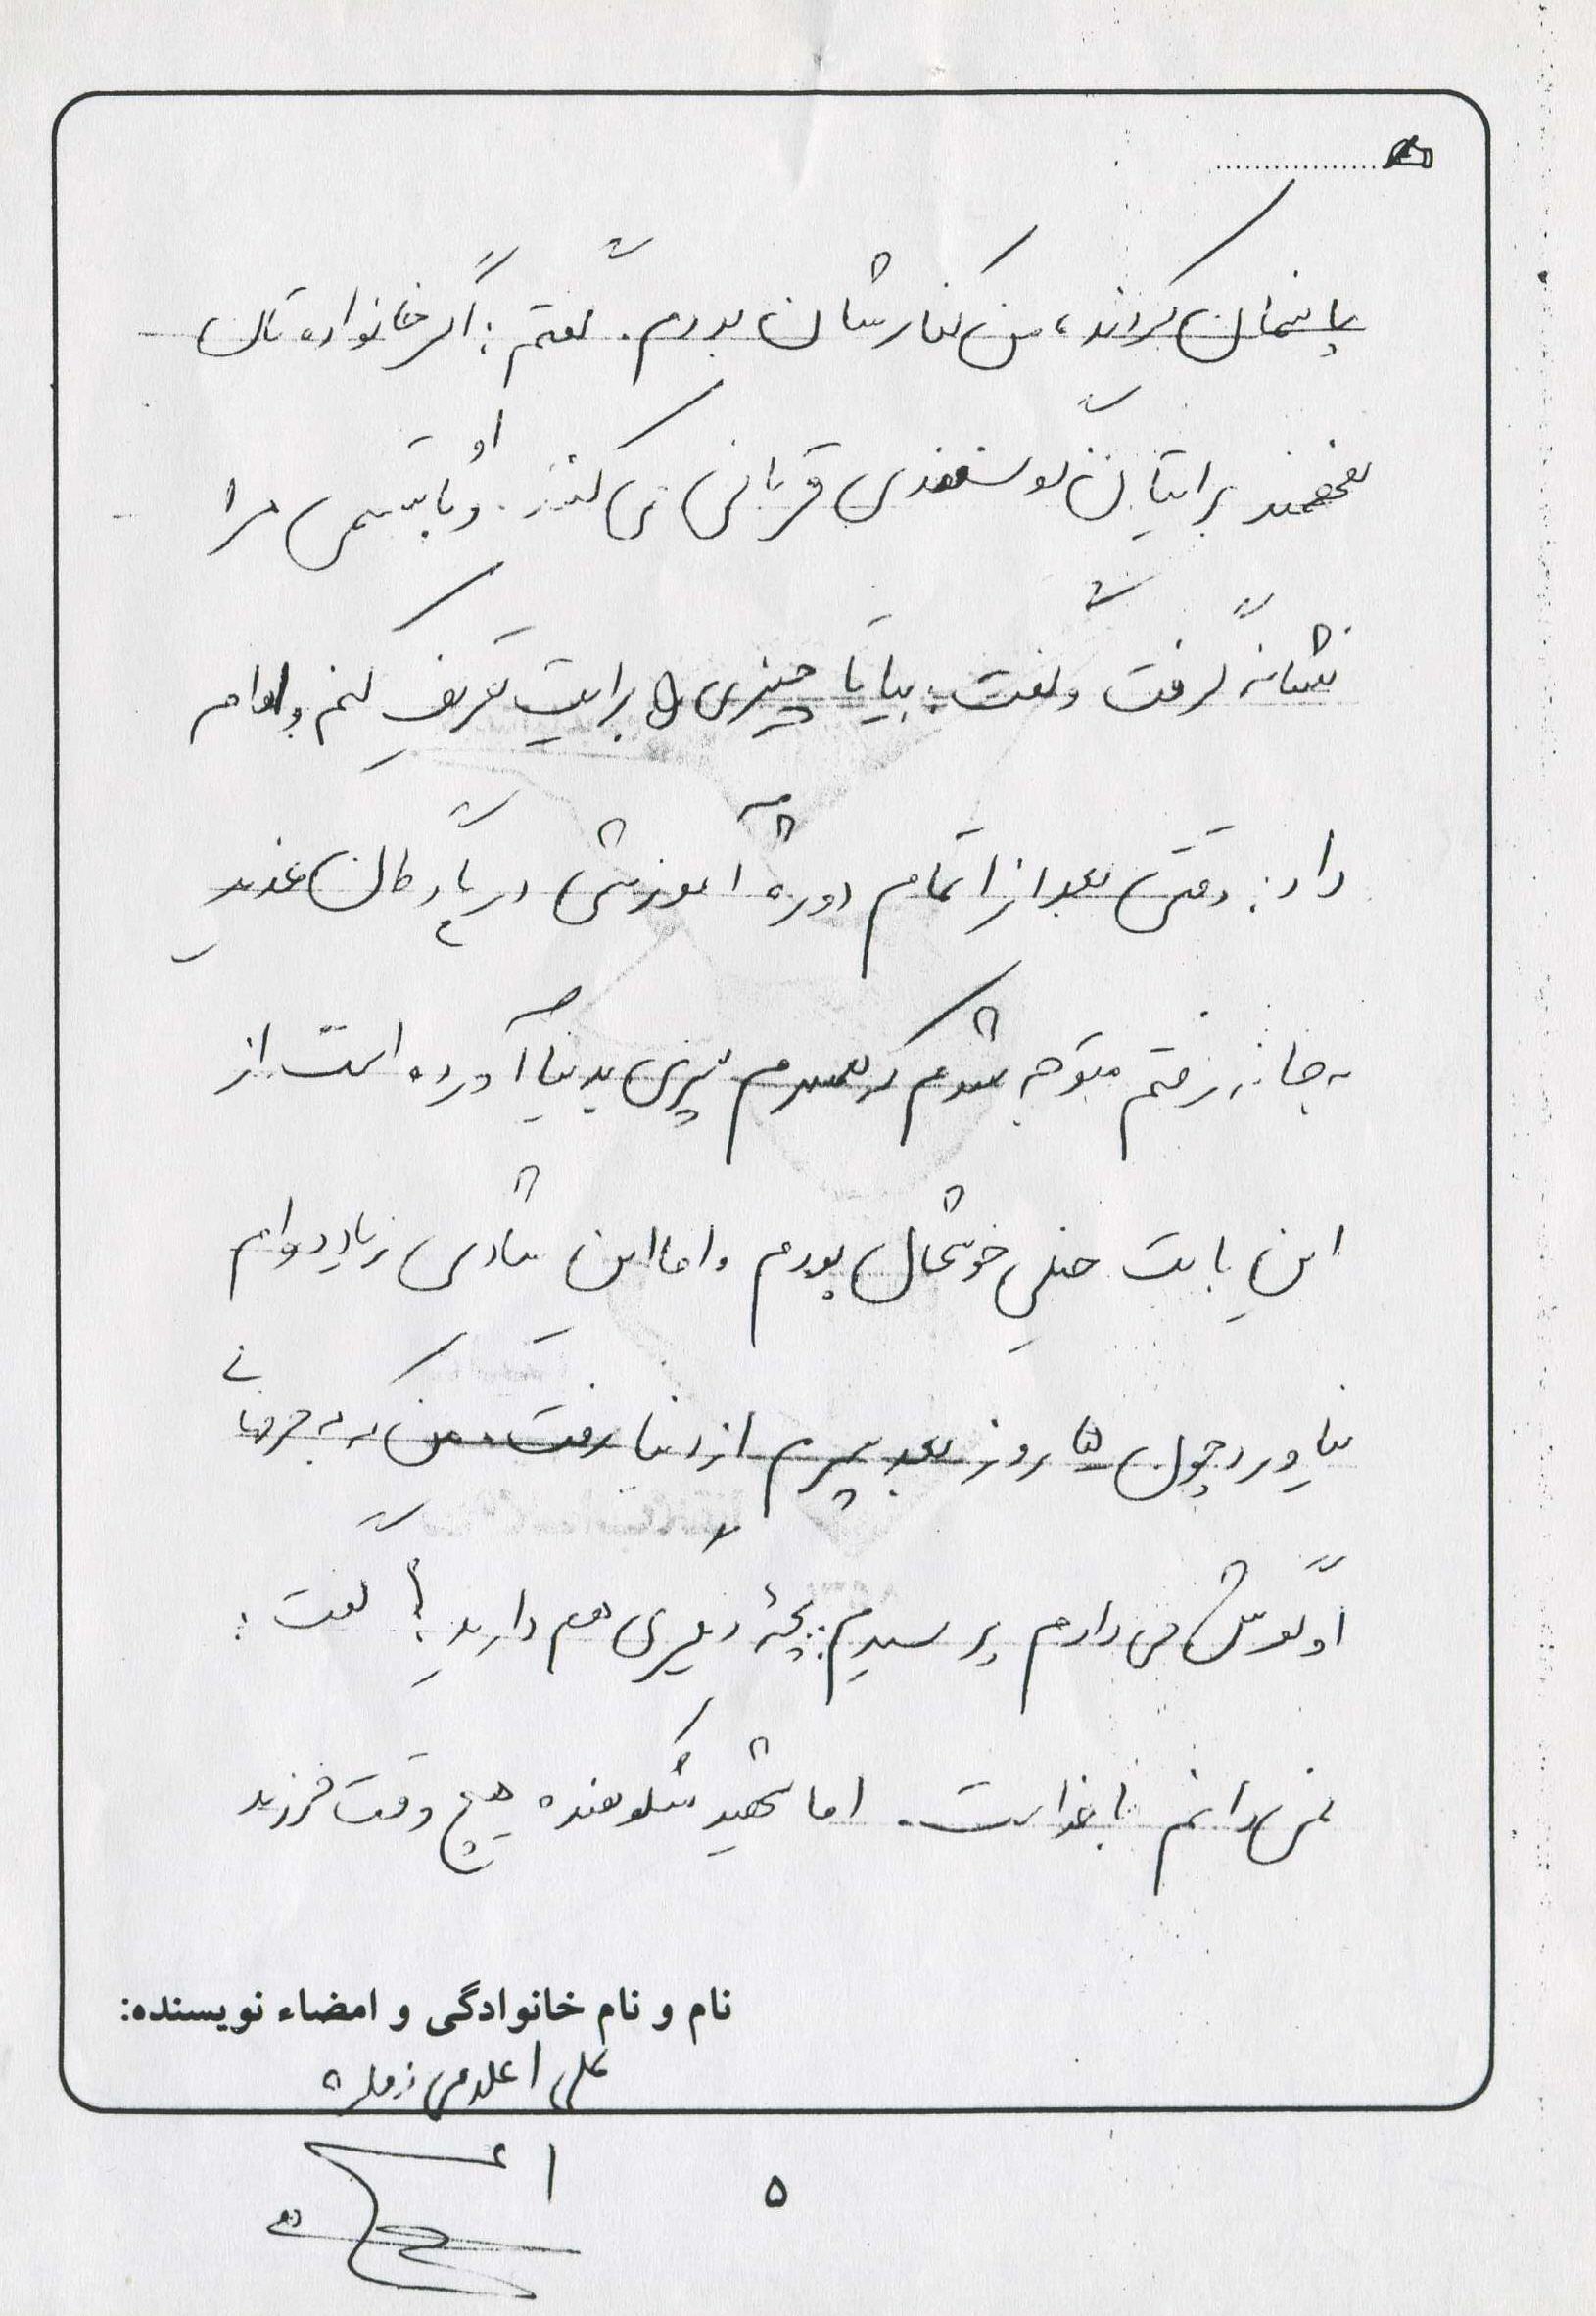 پانسمان کردند، من کنارشان بودم. گفتم: اگر خانواده تان
بفهمند برایتان گوسفندی قربانی می کنند. او با تبسمی مرا
نشانه گرفت و گفت: بیا تا چیزی را برایت تعریف کنم و ادامه
داد: وقتی بعد از اتمام دوره آموزشی در پادگان غدیر
به خانه رفتم متوجه شدم که همسرم پسری بدنیا آورده است از
این بابت خیلی خوشحال بودم و اما این شادی زیاد دوام
نیاورد چون ۵ روز بعد پسرم از دنیا رفت. من که به حرفهای
او گوش می دادم پرسیدم: بچۀ دیگری هم دارید؟ گفت:
نمی دانم با خداست. اما شهید شکوهنده هیچ وقت فرزند
نام و نام خانوادگی و امضاء نویسنده:
علی اعلامی
۵